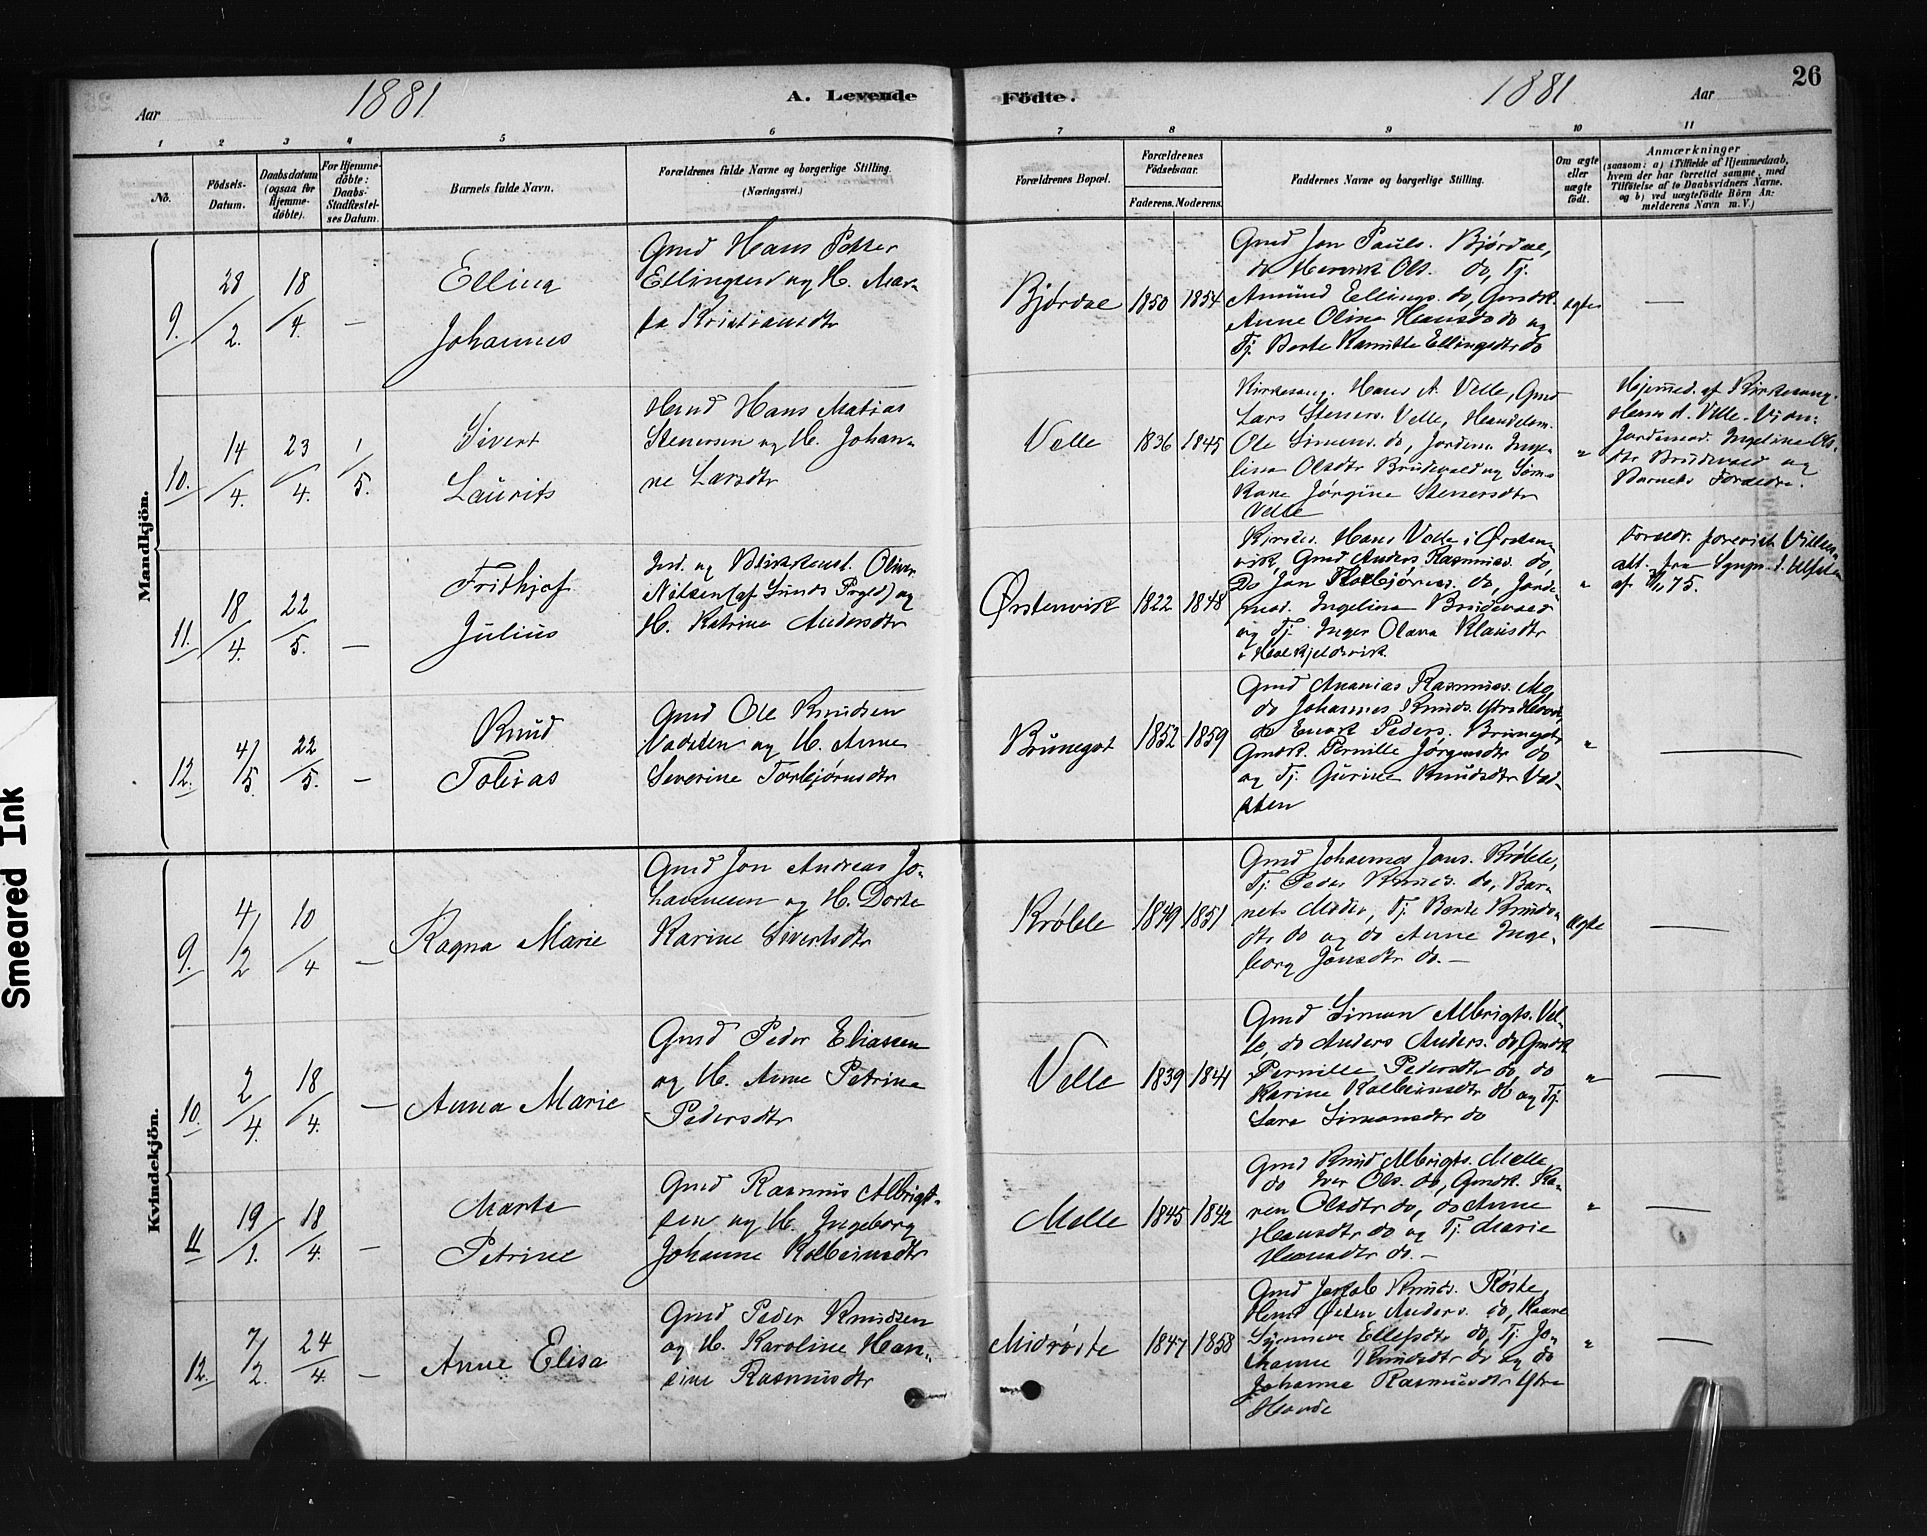 1881 A. Levende Födte. 1881 26
Aar Aar
1 2 3 4 5 6 7 8 9 10 11
No. Födsels-Datum. Daabsdatum (ogsaa for Hjemmedöbte). For Hjemmedöbte: Daabs-Stadfæstelses Datum. Barnets fulde Navn. Forældrenes fulde Navne og borgerlige Stilling. (Næringsvei.) Forældrenes Bopæl. Forældrenes Födselsaar. Faderens. Moderens. Faddernes Navne og borgerlige Stilling. Om ægte eller uægte födt.
Anmærkninger
(saasom: a) i Tilfælde af Hjemmedaab,
hvem der har forrettet samme, med
Tilföielse af to Daabsvidners Navne.
og b) ved uægtefödte Börn An-
melderens Navn m. V.)
Mandkjön.
9. 28/2. 18/4. —
Ellina
Johannes
Gmd Hans Petter
Ellingsen og H. Mar-
ta Kristiansdtr
Bjørdal 1850 1854
Gmd Jon Pauls. Bjørdal,
do Henrik Ols. do, Tj.
Amund Ellings. do, Gmdk.
Anne Oline Hansd do og
Tj. Berte Ellingsdtr do
ægte —
10. 14/4. 23/4. 1/5.
Sivert
Laurits
Hmd Hans Matias
Stenersen og H. Johan-
ne Larsdtr
Velle 1836 1845
Kirkesang. Hans A. Velle, Gmd
Lars Steners. Velle, Handelsm.
Ole Simens. do, Jordem. Inge-
lina Olsdtr Brudevald og
Kone Jørgine Stenersdtr
Velle
"
Hjemmed. af Kirkesang.
Hans A. Velle. Vidn:
Jordemod. Ingeline Ols-
dtr Brudevald og
Barnets Forældre.
11. 18/4. 22/5. —
Frithjof
Julius
Ind. og Blikkensl. Oliver
Nilsen (af Sunds Prgld) og
H. Katrine Andersdtr
Ørstenvik 1822 1848
Kirkes. Hans Velle i Ørsten-
vik, Gmd Anders Rasmuss. do,
Do Jon Torbjørns. do, Jorde-
mod. Ingelina Brudevald
og Tj. Inger Olava Klausdtr
"
af 75.
12. 4/5. 22/5. —
Knud
Tobias
Gmd Ole Knudsen
Vadsten og H. Anne
Severine Torbjørnsdtr
Brunegot 1852 1859
Gmd Ananias Rasmuss. Mo,
do Johannes Knuds. Ytrehovde,
do Enok Peders. Brunegot,
Gmdk. Pernille Jørgensdtr do
og Tj. Gurine Knudsdtr Vad-
sten
" —
Kvindekjön.
9. 4/2 10/4 —
Ragna Marie
Gmd Jon Andreas Jo-
hannesen og H. Dorte
Karine Sivertsdtr
Krøble 1849 1851
Gmd Johannes Jons. Krøble,
Tj. Peder Knuds. do, Bar-
nets Moder, Tj. Berte Knuds-
dtr do og do Anne Inge-
borg Jonsdtr do. —
ægte —
10. 2/4. 18/4. —
Anna Marie
Gmd Peder Eliassen
og H. Anne Petrine
Pedersdtr
Velle 1839 1844
Gmd Simon Albrigts. Vel-
le, do Anders Anders. do, Gmdk
Pernille Pedersdtr do, do
Karine Kolbeinsdtr do og Tj.
Lava Simonsdtr do
" —
11 19/1. 18/4. —
Marta
Petrine
Gmd Rasmus Albrigt-
sen og H. Ingeborg
Johanne Kolbeinsdtr
Melle 1845 1842
Gmd Knud Albrigts. Melle,
do Iver Ols. do, Gmdk. Ka-
ren Olsdtr do, do Anne
Hansdtr do og Tj. Marie
Hansdtr do. —
" —
12. 7/2. 24/4. —
Anne Elisa
Gmd Peder Knudsen
og H. Karoline Han-
sine Rasmusdtr
Midrøste 1847 1858
Gmd Jakob Knuds. Røste,
Hmd Østen Anders. do, Kaarek.
Synneve Ellefsdtr do, Tj. Jo-
hanne Knudsdtr do og do
Johanne Rasmusdtr Ytre
Hovde
" —
Smeared Ink